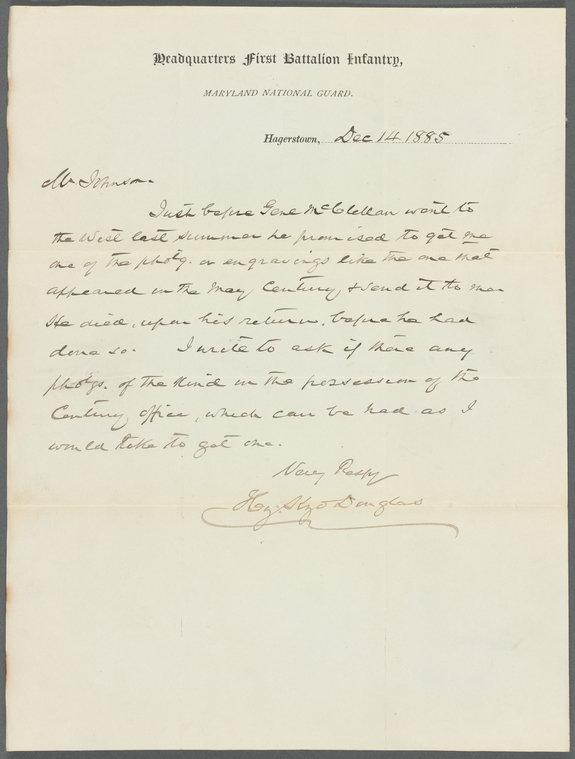 Headquarters First Battalion Infantry,
MARYLAND NATIONAL GUARD.
Hagerstown, Dec 14 1885
Mr Johnson.
Just before Genl McClellan went to
the West last summer he promised to get me
one of the photg. or engravings like the one that
appeared in the May Century, & send it to me.
He died, upon his return, before he had
done so. I write to ask if there any
photgs. of the kind in the possession of the
Century office, which can be had as I
would like to get one.
Very Respy
Hy. Kyd Douglas